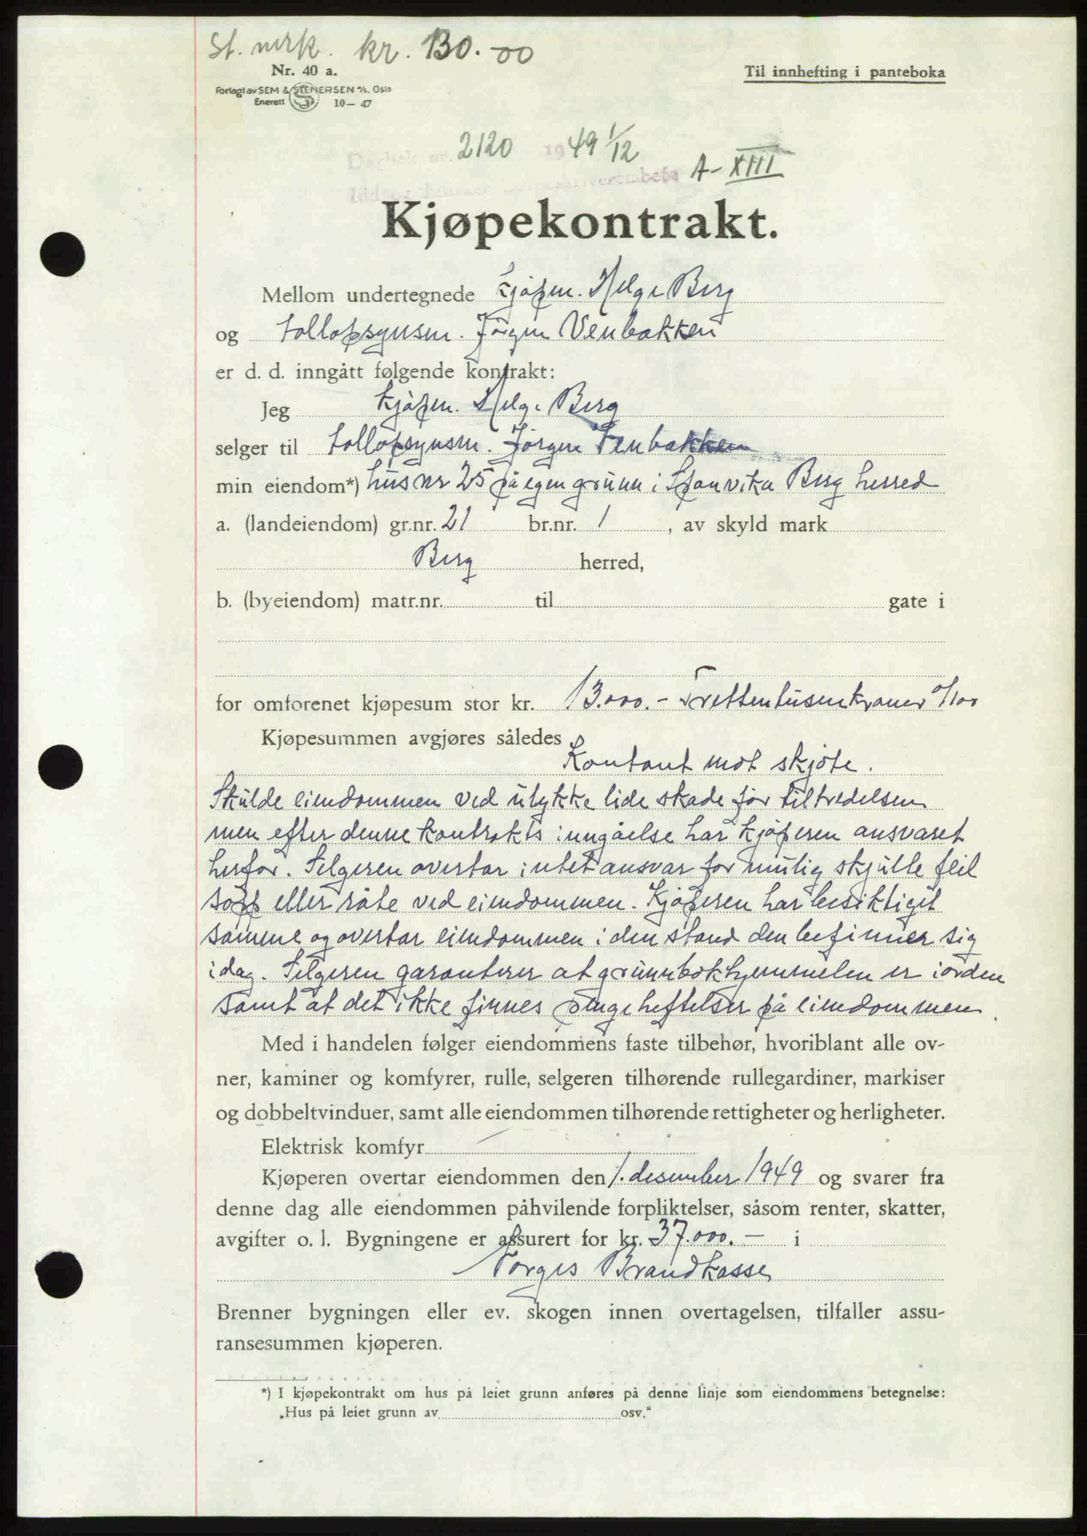 St. mrk. kr. 130.-00
Nr. 40 a.
Til innhefting i panteboka
Forlagt av SEM & STENERSEN A/S. Oslo
Enerett 10-47
Dagbok nr. 2120 1949 1/12
A-XIII
Kjøpekontrakt.
Mellom undertegnede kjøpm. Helge Berg
og tollopsynsm. Jørgen Venbakken
er d. d. inngått følgende kontrakt:
Jeg kjøpm. Helge Berg
selger til tollopsynsm. Jørgen Venbakken
min eiendom*) hus nr 25 på egen grunn i Sponvika Berg herred
a. (landeiendom) gr.nr. 21 br.nr. 1, av skyld mark
Berg herred,
b. (byeiendom) matr.nr. til gate i
for omforenet kjøpesum stor kr. 13.000.- Trettentusenkroner 0/100
Kjøpesummen avgjøres således
Kontant mot skjøte.
Skulde eiendommen ved ulykke lide skade før tiltredelsen
men efter denne kontrakts inngåelse har kjøperen ansvaret
herfor. Selgeren overtar intet ansvar for mulig skjulte feil
sopp eller råte ved eiendommen. Kjøperen har besiktiget
samme og overtar eiendommen i den stand den befinner sig
idag. Selgeren garanterer at grunnbokhjemmelen er i orden
samt at det ikke finnes pengeheftelser på eiendommen.
Med i handelen følger eiendommens faste tilbehør, hvoriblant alle ov-
ner, kaminer og komfyrer, rulle, selgeren tilhørende rullegardiner, markiser
og dobbeltvinduer, samt alle eiendommen tilhørende rettigheter og herligheter.
Elektrisk komfyr
Kjøperen overtar eiendommen den 1. desember 1949 og svarer fra
denne dag alle eiendommen påhvilende forpliktelser, såsom renter, skatter,
avgifter o. l. Bygningene er assurert for kr. 37.000.- i
Norges Brandkasse
Brenner bygningen eller ev. skogen innen overtagelsen, tilfaller assu-
ransesummen kjøperen.
*) I kjøpekontrakt om hus på leiet grunn anføres på denne linje som eiendommens betegnelse:
„Hus på leiet grunn av osv."